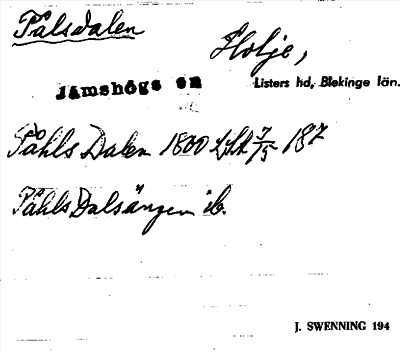 Pålsdalen
Holje,
Jämshögs sn
Listers hd, Blekinge län.
Påhls Dalen 1800 LSk 7/15 187
Påhls Dalsängen ib.
J. SWENNING 194